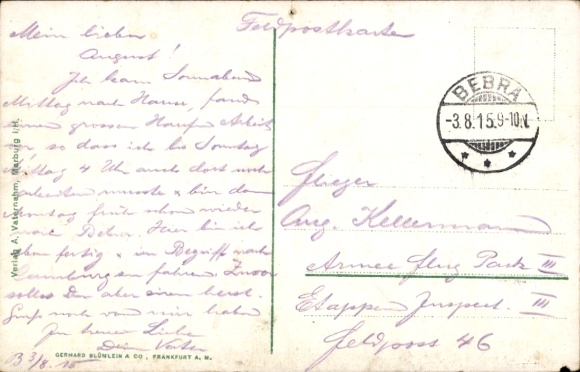 Feldpostkarte
Mein lieber
August!
Ich kam Sonnabend
Mittag nach Hause, fand
einen grossen Haufen Arbeit
vor so dass ich bis Sonntag
Mittag 4 Uhr auch dort noch
arbeiten musste & bin dann
Montag früh schon wieder
Bebra. Hier bin ich
eben fertig & im Begriff nach
zu fahren. Zuvor
sollst Du aber einen herzl.
Gruß noch von mir haben
In treuer Liebe
Dein Vater
B 3/8. 15
BEBRA
-3.8.15.9-10N.
Flieger
Aug. Kellermann
Armee Flug Park III
Etappen Inspect. III
Feldpost 46
Verlag A. Vaternahm, Marburg i/H.
GERHARD BLÜMLEIN & CO., FRANKFURT A. M.